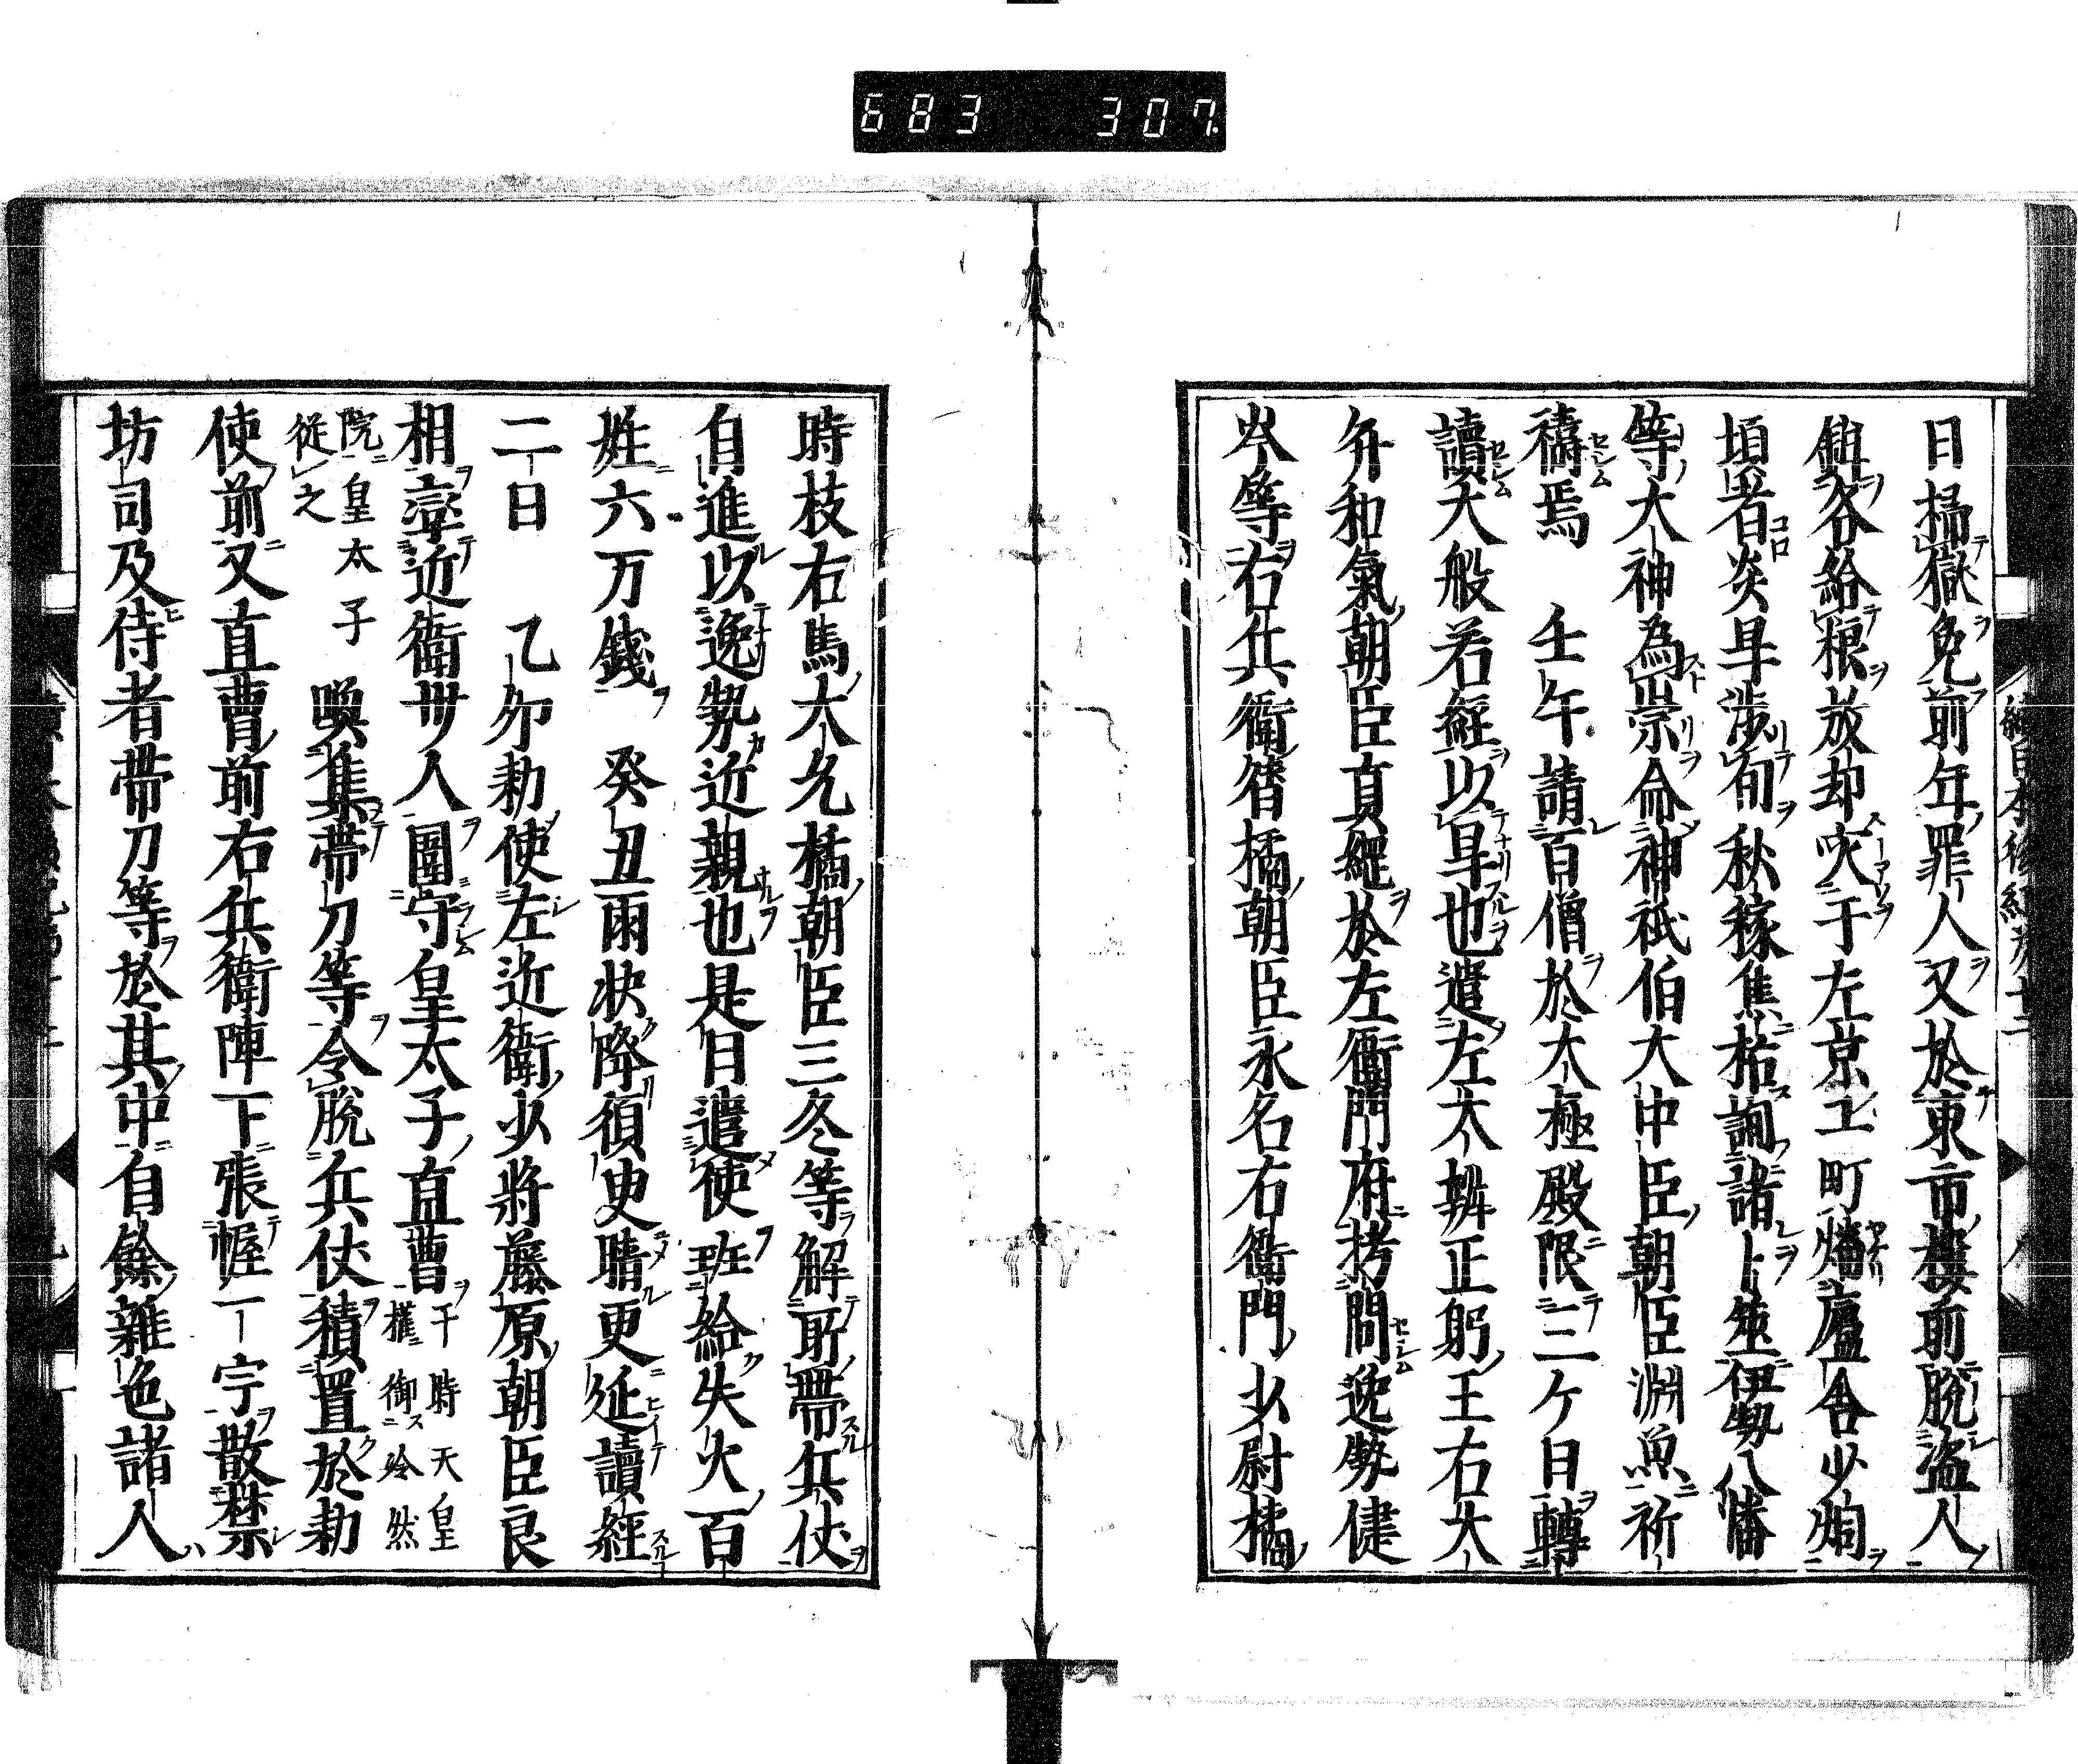 683 307
日掃獄免前年罪人又於東市樓前脱盗人
鉗各給粮放却灾于左京工町燔廬舎少烟
頃者炎旱渉旬秋稼焦枯詢諸卜筮伊勢八幡
等大神為祟命神祇伯大中臣朝臣淵魚祈
禱焉 壬午請百僧於大極殿限三ケ日轉
讀大般若經以旱也遣左大辨正躬王右大
弁和氣朝臣真綱於左衛門府拷問逸勢健
岑等右兵衛督橘朝臣永名右衛門少尉橘
時枝右馬大允橘朝臣三冬等解所帶兵仗
自進以逸勢近親也是日遣使班給失火百
姓六万錢 癸丑雨快降須臾晴更延讀經
二日 乙卯勅使左近衛少將藤原朝臣良
相率近衛卅人圍守皇太子直曹 于時天皇
權御冷然
院皇太子
從之 喚集帶刀等令脱兵仗積置於勅
使前又直曹前右兵衛陣下張幄一宇散禁
坊司及侍者帶刀等於其中自餘雜色諸人